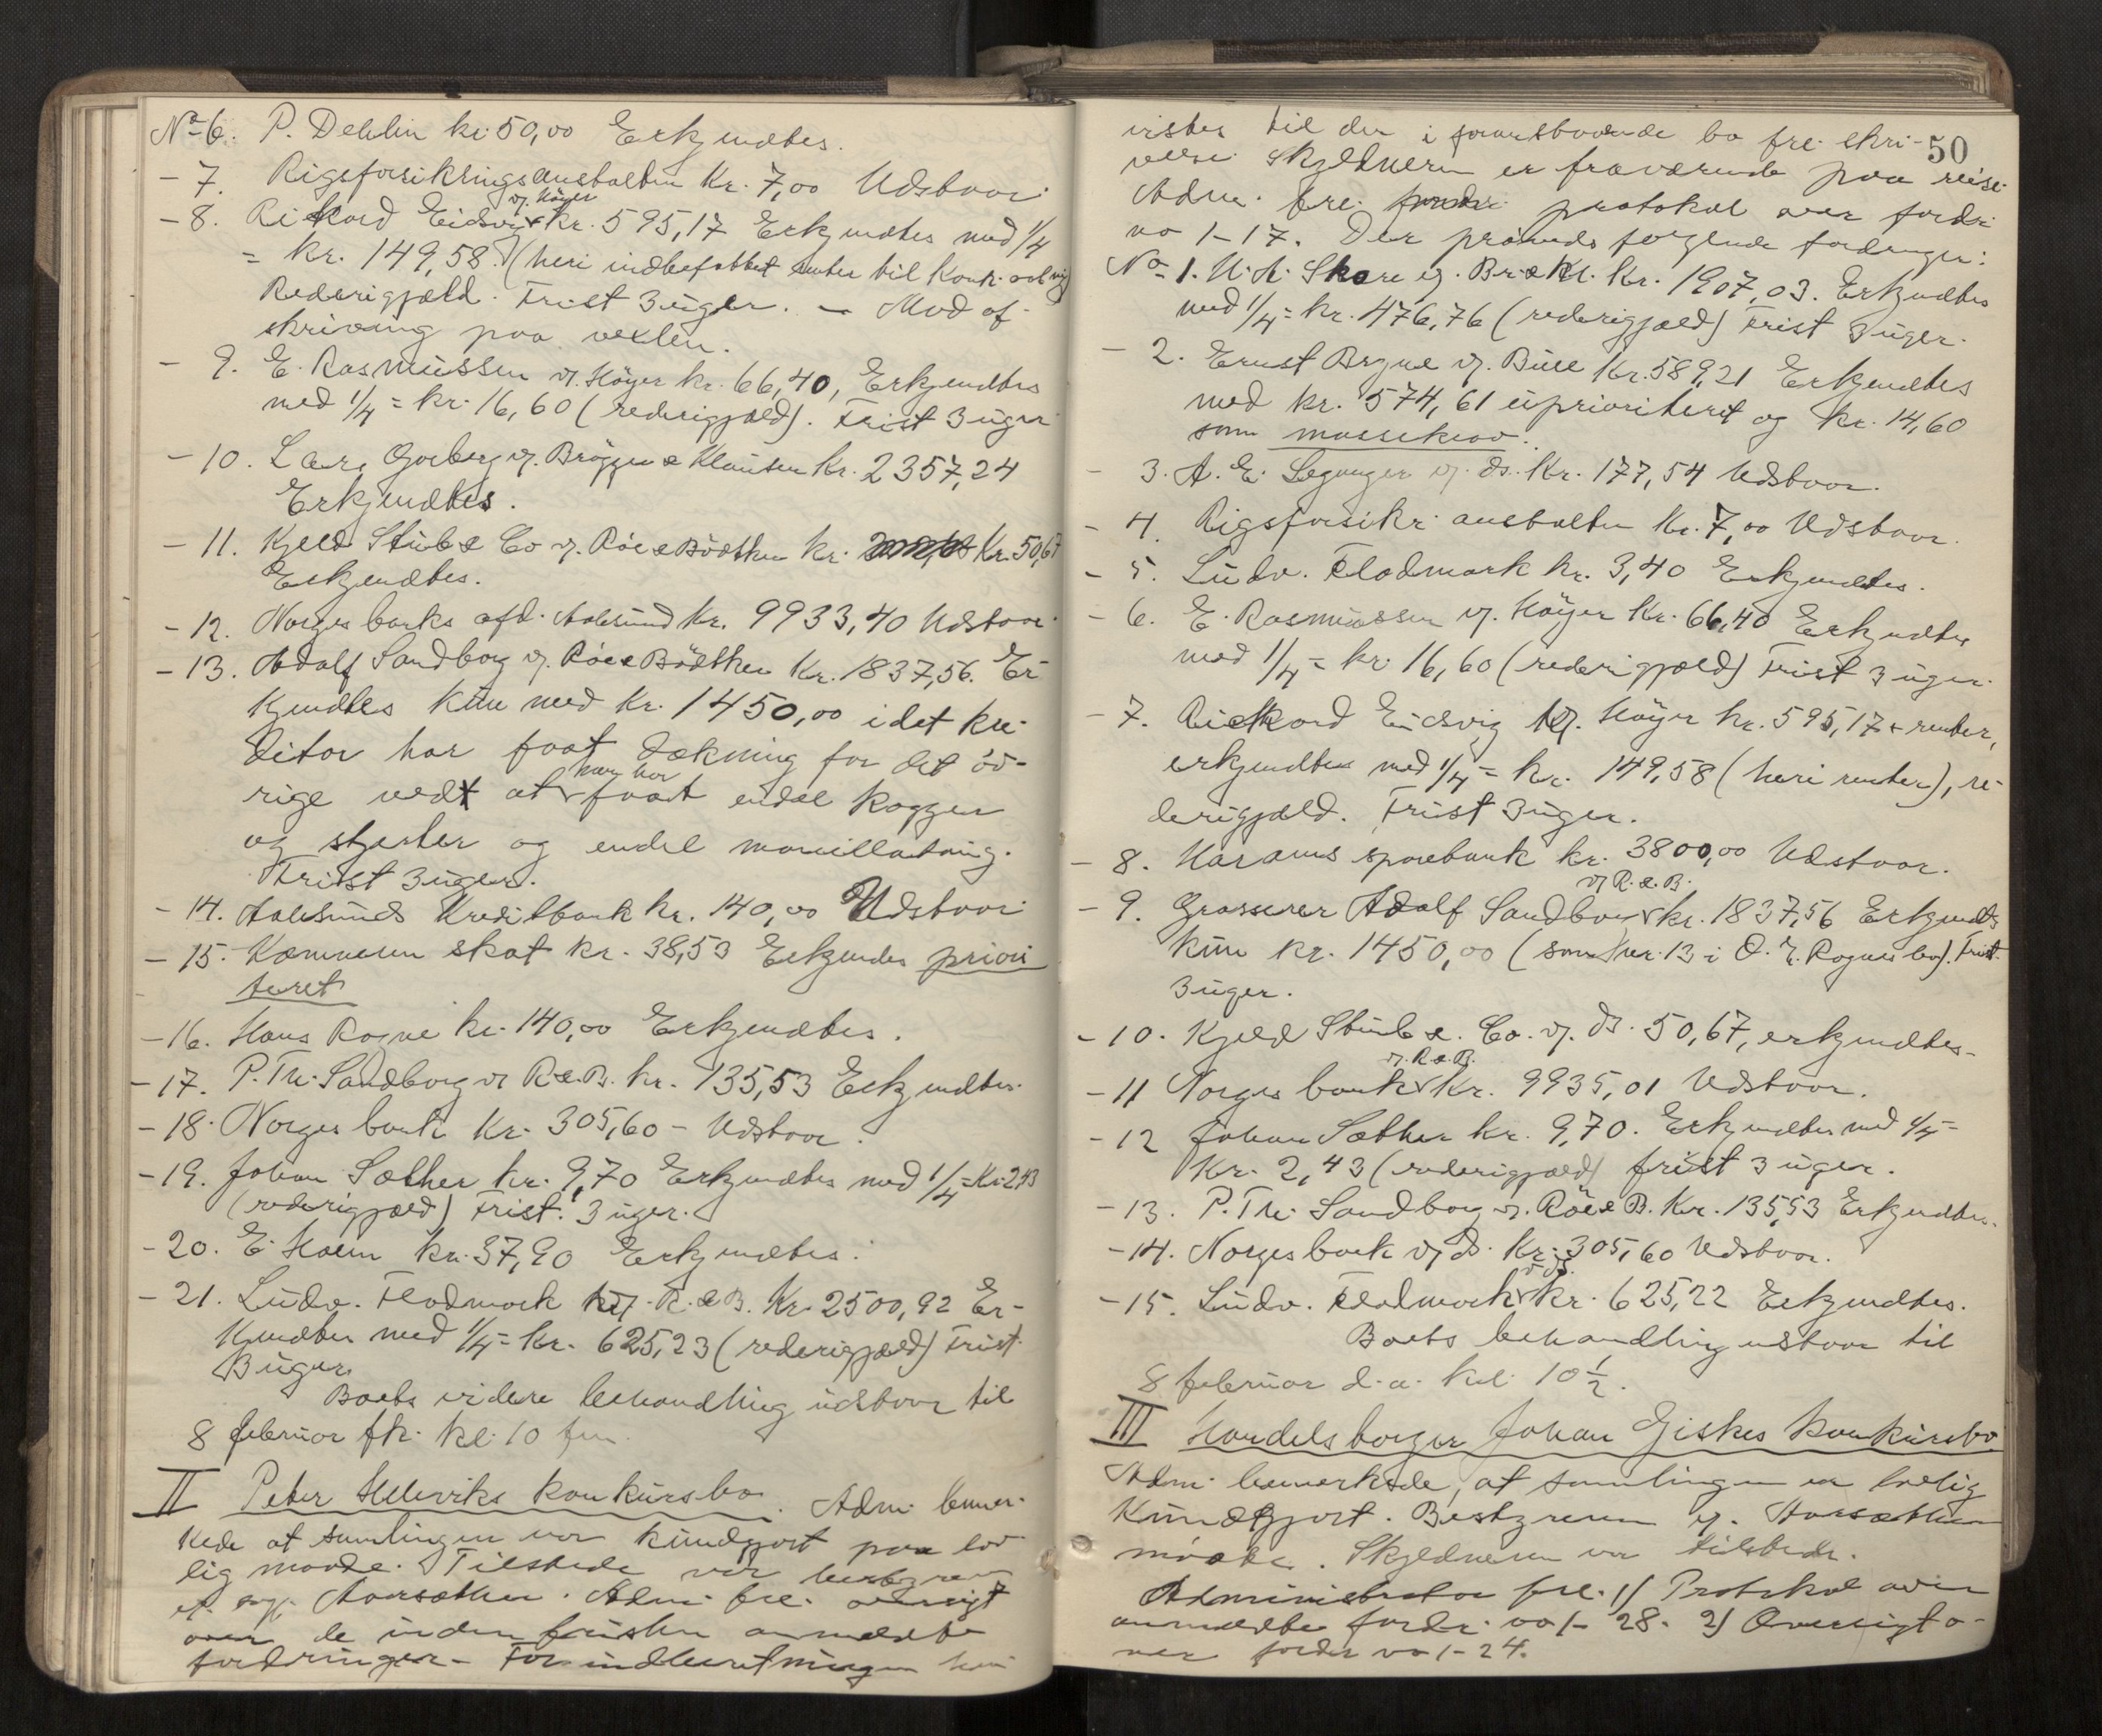 No 6. P. Dehlin kr. 50,00 Erkjendtes.
- 7. Rigsforsikringsanstalten Kr. 7,00 Udstaar.
v. Höyer
- 8. Rikard Eidsvig kr. 595,17 Erkjendtes med 1/4
= kr. 149,58 (heri indbefattet renter til konk. aabning)
Rederigjæld. Frist 3 uger. - Mod af-
skrivning paa vexlen.
- 9. E. Rasmussen v. Höyer kr. 66,40, Erkjendtes
med 1/4 = kr. 16,60 (rederigjæld). Frist 3 uger
- 10. Lars v. Brögger & Klausen Kr. 2357,24
Erkjendtes.
- 11. Kjeld Stub & Co v. Röe & Bödtker kr. Kr. 50,67
Erkjendtes.
- 12. Norges banks afd. Aalesund kr. 9933,40 Udstaar.
- 13. Adolf Sandborg v. Röe & Bödtker Kr. 1837,56. Er-
kjendtes kun med kr. 1450,00 idet kre-
ditor har faat dækning for det öv-
man har
rige vedt at faat endel kagger
og stjerter og endel manillataug.
Frist 3 uger.
- 14. Aalesunds Kreditbank kr. 140,00 Udstaar
- 15. Kæmneren skat kr. 38,53 Erkjendes priori
teret
- 16. Hans Rogne kr. 140,00 Erkjendtes.
- 17. P. Th. Sandborg v R & B. kr. 135,53 Erkjendtes.
- 18. Norges bank Kr. 305,60 - Udstaar.
- 19. Johan Sæther kr. 9,70 Erkjendtes med 1/4 = Kr 2,43
(rederigjæld) Frist. 3 uger.
- 20. E. Holm kr. 37,90 Erkjendtes.
- 21. Ludv. Flodmark v. R. & B. Kr. 2500,92 Er-
kjendtes med 1/4 = kr. 625,23 (rederigjæld) Frist.
3 uger.
Boets videre behandling udstaar til
8 februar fk. kl. 10 fm.
II Peter Helleviks konkursbo. Adm. bemer-
kede at samlingen var kundgjort paa lov
lig maade. Tilstede var bestyreren
Aarsæther. Adm. fre. oversigt
over de inden fristen anmeldte
fordringer - For indberetningen hen
50
vistes til den i foranstaaende bo fre. skri-
velse. Skyldneren er fraværende paa reise.
Adm. fre. protokol over fordr.
no 1-17. Der prövedes fölgende fordringer:
No 1. U. A. Skare v. Br & Kl. kr. 1907,03. Erkjendtes
med 1/4 = kr. 476,76 (rederigjæld) Frist 3 uger.
- 2. Ernst Bryne v. Bull Kr. 589,21 Erkjendtes
med kr. 574,61 uprioritert og kr. 14,60
som massekrav.
- 3. A. E. Leganger v. ds. Kr. 177,54 Udstaar.
- 4. Rigsforsikr. anstalten Kr. 7,00 Udstaar.
- 5. Ludv. Flodmark kr. 3,40 Erkjendtes.
- 6. E. Rasmussen v. Höyer Kr. 66,40 Erkjendtes
med 1/4 = kr. 16,60 (rederigjæld) Frist 3 uger.
- 7. Rickard Eidsvig v. Höyer kr. 595,17 + renter,
erkjendtes med 1/4 = kr. 149,58 (heri renter), re-
derigjæld. Frist 3 uger.
- 8. Harams sparebank kr. 3800,00 Udstaar.
v R. & B.
- 9. Grosserer Adolf Sandborg kr. 1837,56 Erkjendtes
kun kr. 1450,00 (som nr. 13 i O. E. Rognes bo). Frist
3 uger.
- 10. Kjeld Stub & Co. v. ds. 50,67, erkjendtes -
v. R & B.
- 11 Norges bank Kr. 9935,01 Udstaar.
- 12 Johan Sæther kr. 9,70. Erkjendtes med 1/4 =
Kr. 2,43 (rederigjæld) frist 3 uger.
- 13. P. Th. Sandborg v. Röe & B. Kr. 135,53 Erkjendtes.
- 14. Norges bank v ds. Kr. 305,60 Udstaar.
v. ds.
- 15. Ludv. Flodmark kr. 625,22 Erkjendtes.
Boets behandling udstaar til
8 februar d. a. kl. 10 1/2.
III Handelsborger Johan Giskes konkursbo
Adm. bemerkede, at samlingen er lovlig
kundgjort. Bestyreren v. Aarsæther
mödte. Skyldneren var tilstede.
Administrator fre. 1) Protokol over
anmeldte fordr. no 1 - 28. 2) Oversigt o-
ver fordr no 1 - 24.